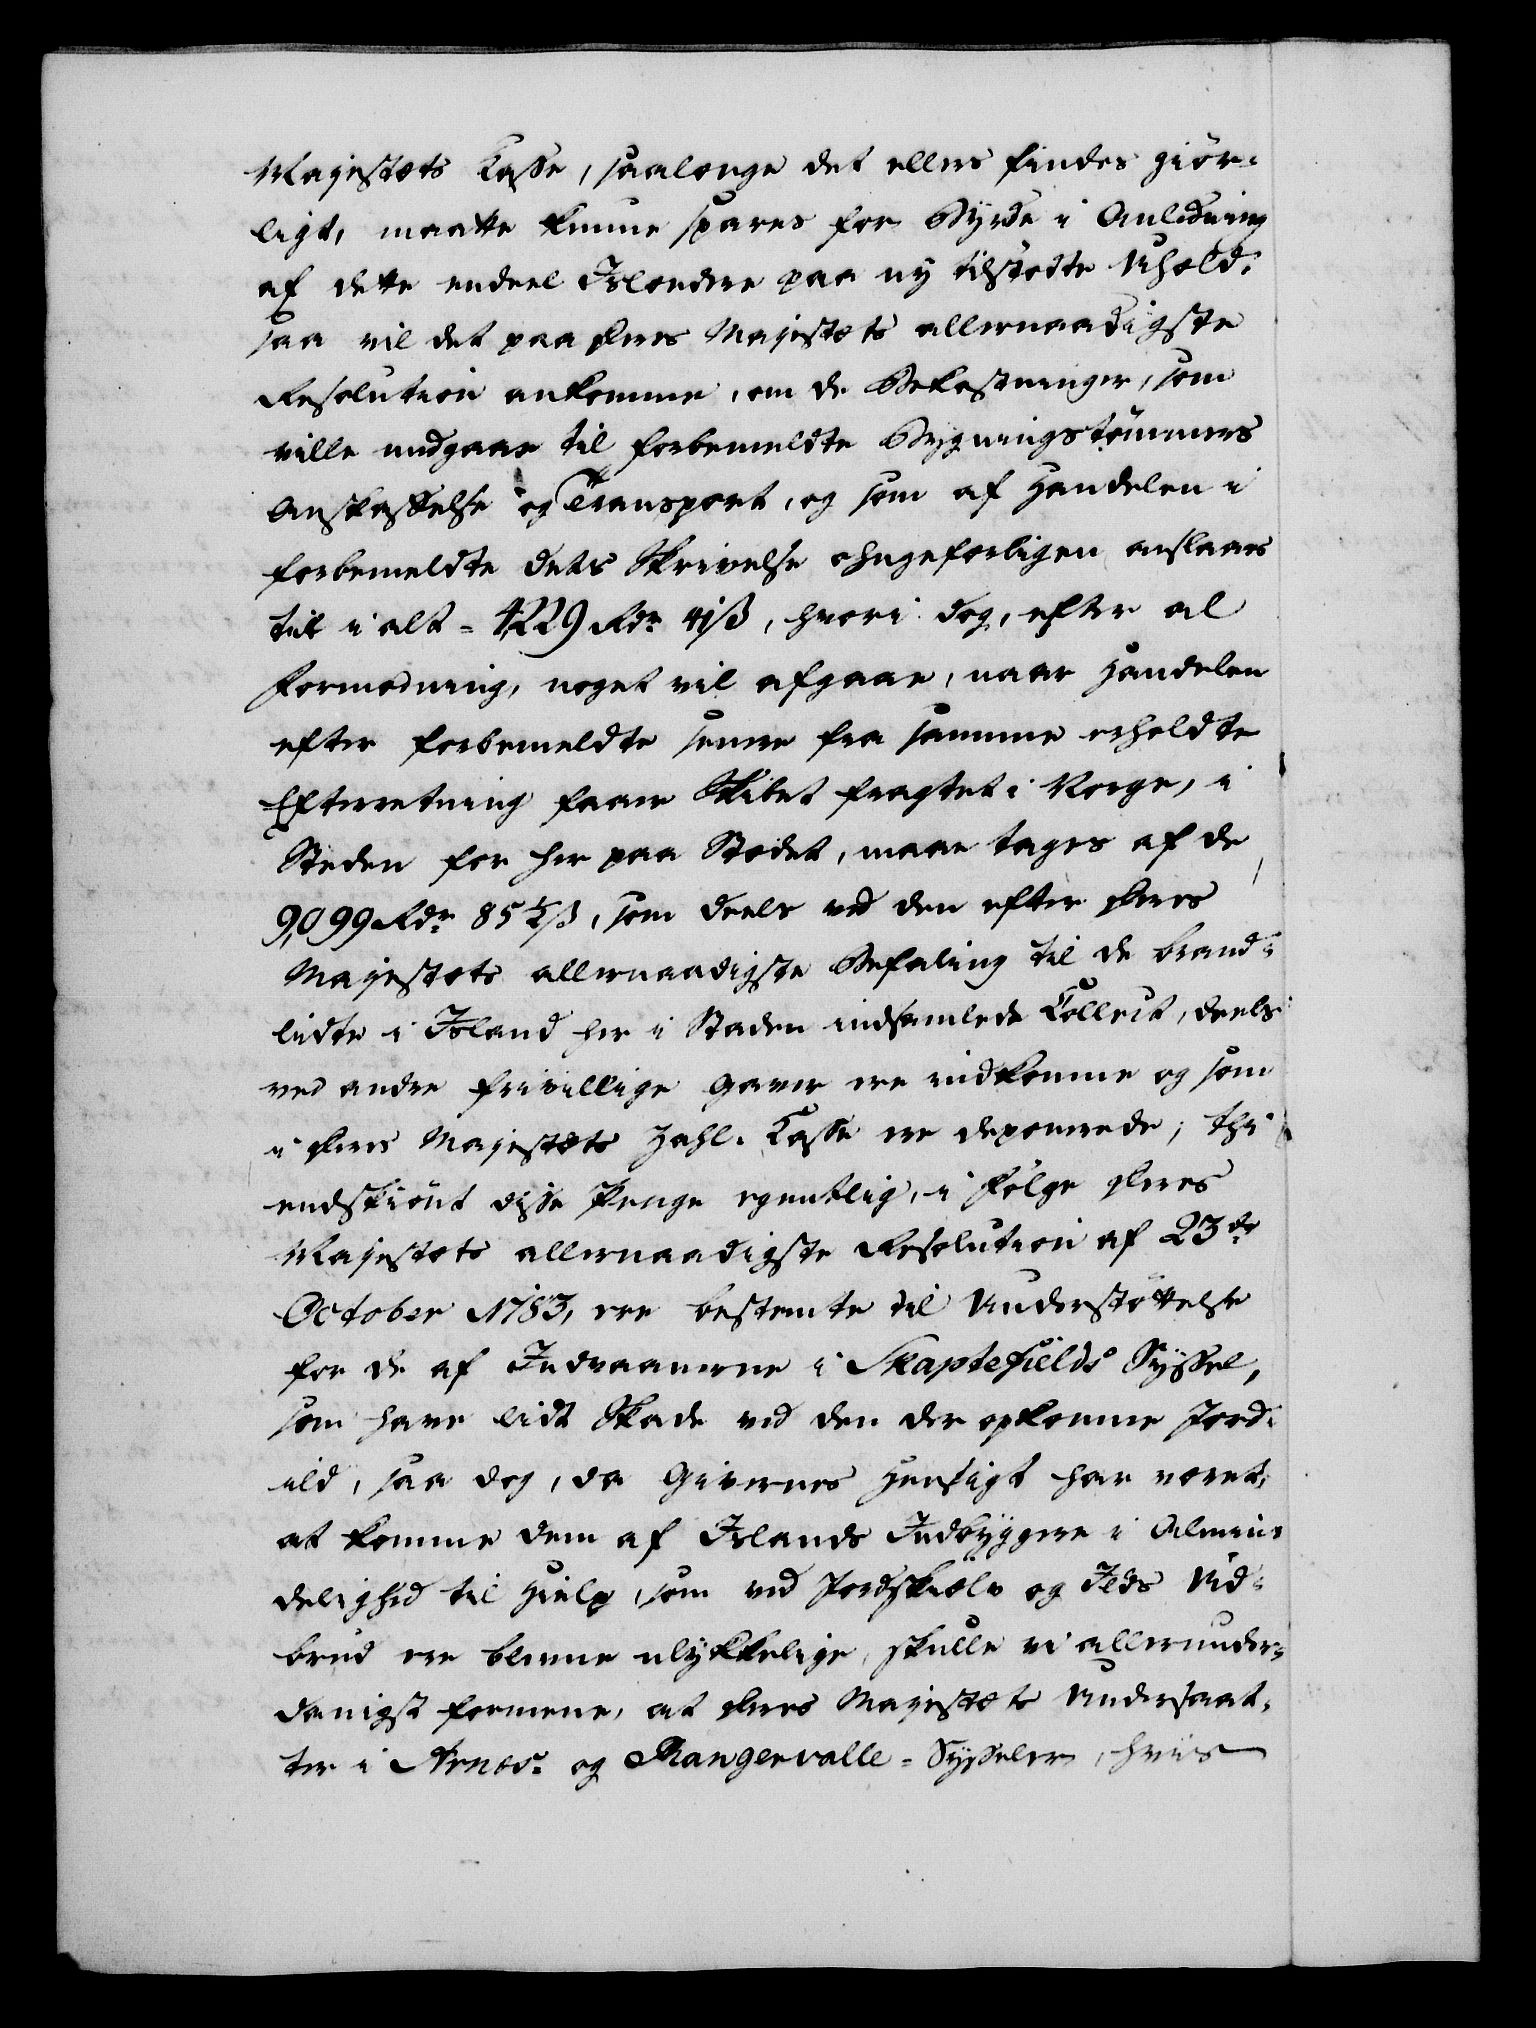 Majestæts Kasse, saalænge det ellers findes giör-
ligt, maatte kunne spares for Byrde i Anledning
af dette endeel Islændere paa ny tilstödte Uheld:
saa vil det paa Deres Majestæts allernaadigste
Resolution ankomme, om de Bekostninger, som
ville medgaae til forbemeldte Bygningstömmers
Anskaffelse og Transport, og som af Handelen i
forbemeldte dets Skrivelse ohngefærligen anslaaes
til i alt = 4229 Rdr 41 ß, hvori dog, efter al
Formodning, noget vil afgaae, naar Handelen
efter forbemeldte senere fra samme erholdte
Efterretning faaer Skibet fragtet i Norge, i
Steden for her paa Stædet, maae tages af de
9,099 Rdr 85 ½ ß, som deels ved den efter Deres
Majestæts allernaadigste Befaling til de brand-
lidte i Island her i Staden indsamlede Collect, deels
ved andre frivillige Gaver ere indkomne og som
i Deres Majestæts Zahl-Casse ere deponerede; thi
endskiönt disse Penge egentlig, i Fölge Deres
Majestæts allernaadigste Resolution af 23de
October 1783, ere bestemte til Understöttelse
for de af Indvaanerne i Skaptefields Syssel,
som have lidt Skade ved den der opkomne Jord-
ild, saa dog, da Givernes Hensigt har været,
at komme dem af Islands Indbyggere i Almin-
delighed til Hielp, som ved Jordskiælv og Ilds Ud-
brud ere blevne ulykkelige, skulle vi allerunder-
danigst formene, at Deres Majestæts Undersaat-
ter i Arnes- og Rangervalle-Sysseler, hviis